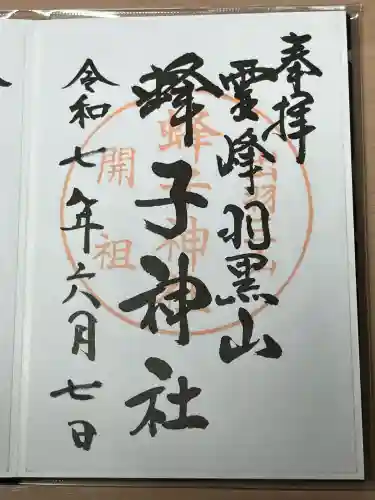 奉拝
霊峰羽黒山
蜂子神社
令和七年六月七日
出羽三山
蜂子神社
開祖